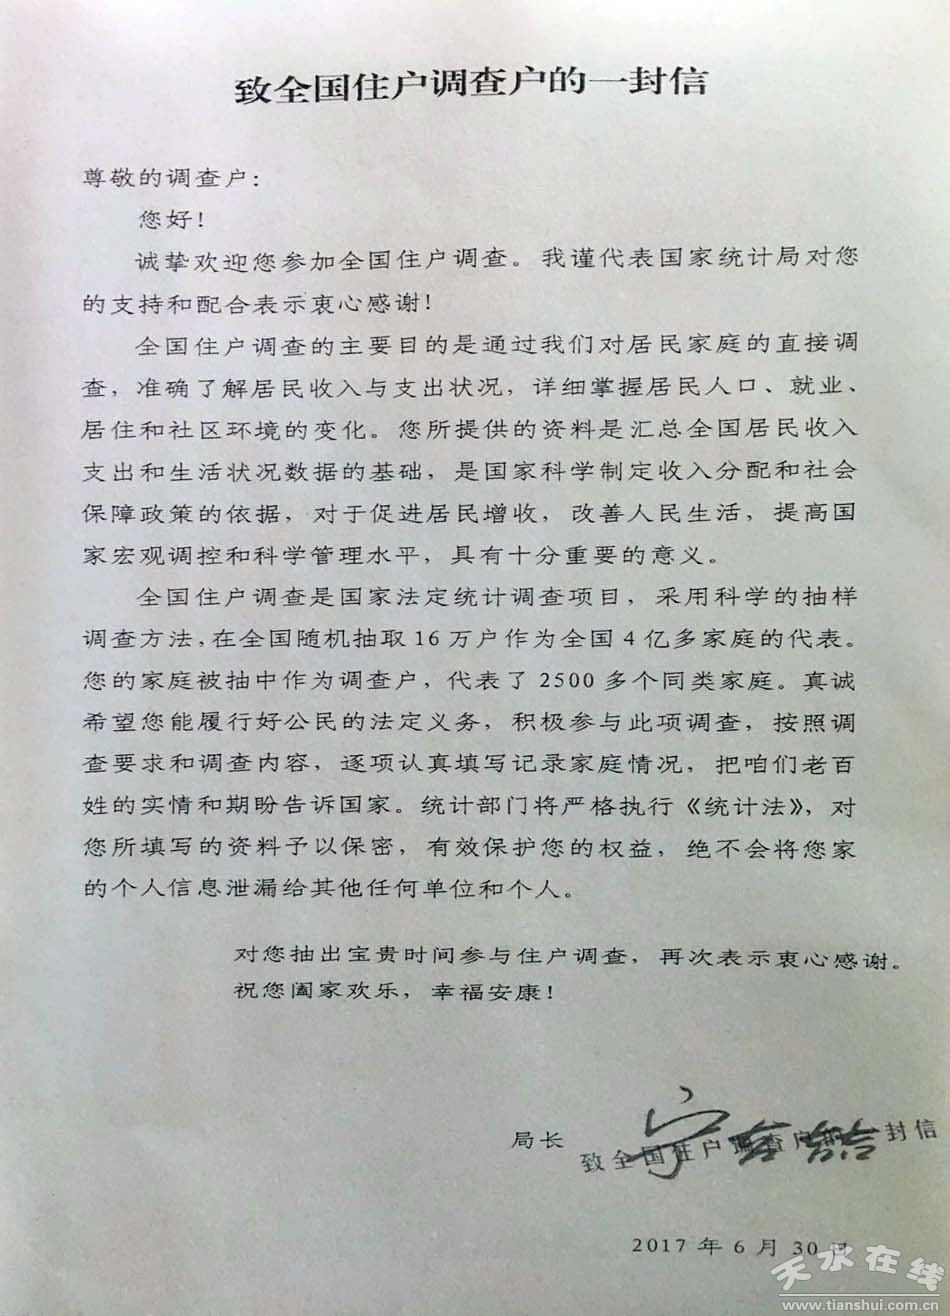 致全国住户调查户的一封信
尊敬的调查户：
您好！
诚挚欢迎您参加全国住户调查。我谨代表国家统计局对您
的支持和配合表示衷心感谢！
全国住户调查的主要目的是通过我们对居民家庭的直接调
查，准确了解居民收入与支出状况，详细掌握居民人口、就业、
居住和社区环境的变化。您所提供的资料是汇总全国居民收入
支出和生活状况数据的基础，是国家科学制定收入分配和社会
保障政策的依据，对于促进居民增收，改善人民生活，提高国
家宏观调控和科学管理水平，具有十分重要的意义。
全国住户调查是国家法定统计调查项目，采用科学的抽样
调查方法，在全国随机抽取16万户作为全国4亿多家庭的代表。
您的家庭被抽中作为调查户，代表了2500多个同类家庭。真诚
希望您能履行好公民的法定义务，积极参与此项调查，按照调
查要求和调查内容，逐项认真填写记录家庭情况，把咱们老百
姓的实情和期盼告诉国家。统计部门将严格执行《统计法》，对
您所填写的资料予以保密，有效保护您的权益，绝不会将您家
的个人信息泄漏给其他任何单位和个人。
对您抽出宝贵时间参与住户调查，再次表示衷心感谢。
祝您阖家欢乐，幸福安康！
局长
致全国住户调查户的一封信
2017年6月30日
天水在线
www.tianshui.com.cn